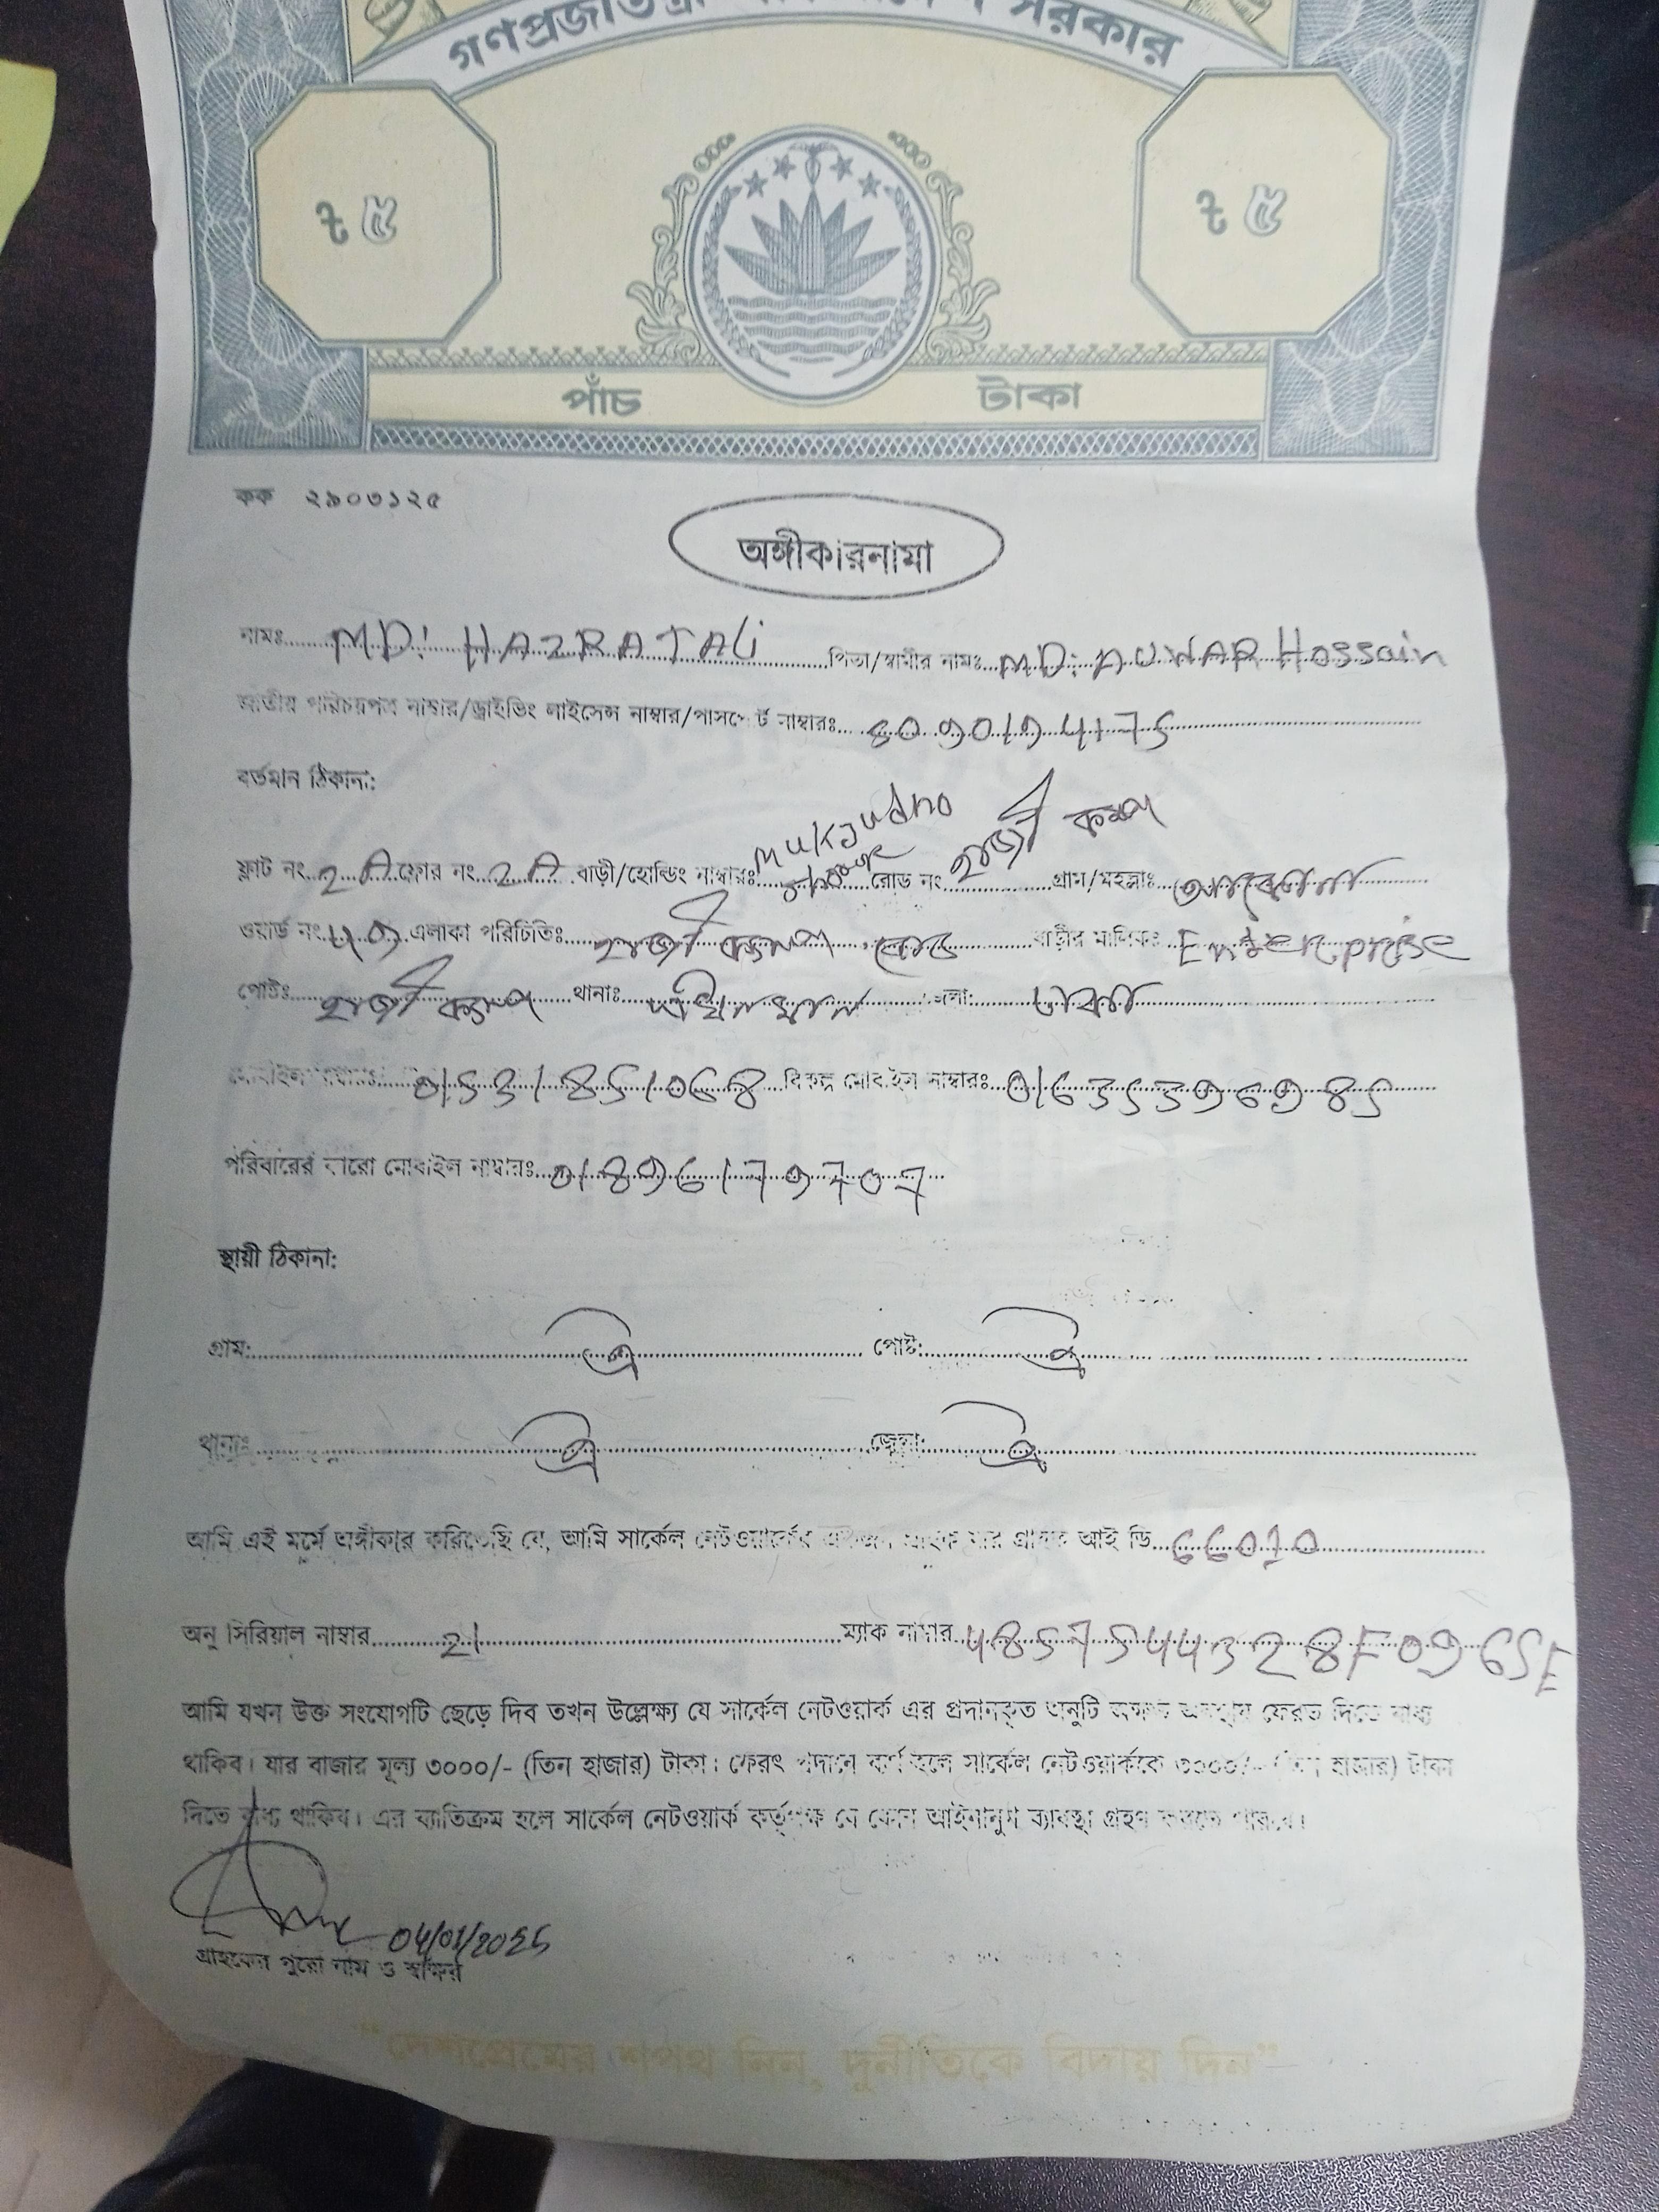 সরকার
৳ ৫ ৳ ৫
পাঁচ টাকা
কক ২৯০৩১২৫
অঙ্গীকারনামা
নামঃ MD: HAZRAT ALi পিতা/স্বামীর নামঃ MD: AUWAR Hossain
জাতীয় পরিচয়পত্র নাম্বার/ড্রাইভিং লাইসেন্স নাম্বার/পাসপোর্ট নাম্বারঃ 8090194175
বর্তমান ঠিকানা:
ফ্লাট নং 2A ফ্লোর নং 2A বাড়ী/হোল্ডিং নাম্বারঃ Mukjudho রোড নং হাজী ক্যাম্প গ্রাম/মহল্লাঃ
ওয়ার্ড নং 49 এলাকা পরিচিতিঃ হাজী ক্যাম্প রোড বাড়ীর মালিকঃ Enterprise
পোষ্টঃ হাজী ক্যাম্প থানাঃ জেলা: ঢাকা
মোবাইল নাম্বারঃ 01531851068 বিকল্প মোবাইল নাম্বারঃ 01635396985
পরিবারের কারো মোবাইল নাম্বারঃ 01896179707
স্থায়ী ঠিকানা:
গ্রাম: ঐ পোষ্ট: ঐ
থানাঃ ঐ জেলা: ঐ
আমি এই মর্মে অঙ্গীকার করিতেছি যে, আমি সার্কেল নেটওয়ার্কের একজন গ্রাহক যার গ্রাহক আই ডি 66010
অনু সিরিয়াল নাম্বার 21 ম্যাক নাম্বার 4857544328F0965E
আমি যখন উক্ত সংযোগটি ছেড়ে দিব তখন উল্লেক্ষ্য যে সার্কেল নেটওয়ার্ক এর প্রদানকৃত অনুটি অক্ষত অবস্থায় ফেরত দিতে বাধ্য
থাকিব। যার বাজার মূল্য ৩০০০/- (তিন হাজার) টাকা। ফেরৎ প্রদানে ব্যর্থ হলে সার্কেল নেটওয়ার্ককে ৩০০০/- (তিন হাজার) টাকা
দিতে বাধ্য থাকিব। এর ব্যাতিক্রম হলে সার্কেল নেটওয়ার্ক কর্তৃপক্ষ যে কোন আইনানুগ ব্যাবস্থা গ্রহণ করতে পারবে।
04/01/2025
গ্রাহকের পুরো নাম ও স্বাক্ষর
“দেশপ্রেমের শপথ নিন, দুর্নীতিকে বিদায় দিন”